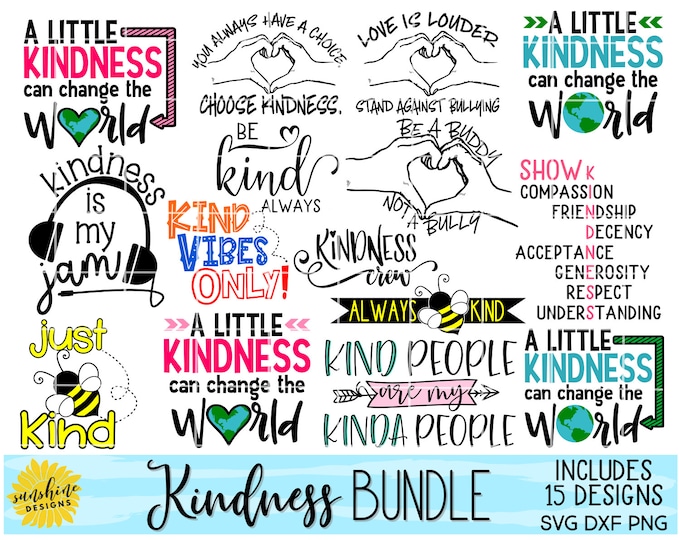 A LITTLE
KINDNESS
can change the
World
YOU ALWAYS HAVE A CHOICE.
CHOOSE KINDNESS.
LOVE IS LOUDER
STAND AGAINST BULLYING
A LITTLE
KINDNESS
can change the
World
kindness
is
my
jam
BE
kind
ALWAYS
BE A BUDDY
NOT A BULLY
SHOW K
COMPASSION
FRIENDSHIP
DECENCY
ACCEPTANCE
GENEROSITY
RESPECT
UNDERSTANDING
KIND
VIBES
ONLY!
KINDNESS
crew
ALWAYS KIND
just
Kind
A LITTLE
KINDNESS
can change the
World
KIND PEOPLE
are my
KINDA PEOPLE
A LITTLE
KINDNESS
can change the
World
sunshine
DESIGNS
Kindness BUNDLE
INCLUDES
15 DESIGNS
SVG DXF PNG